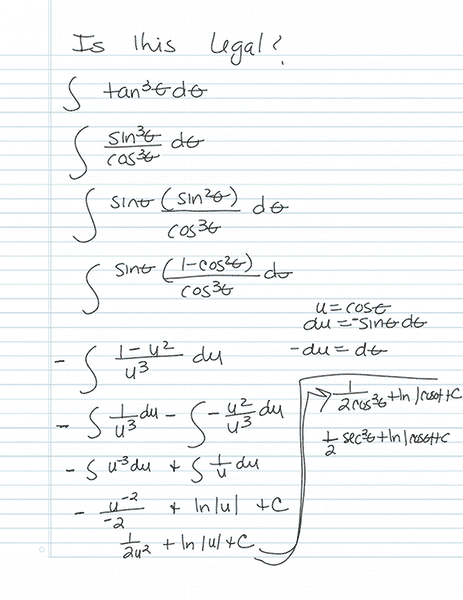 Is this legal?
∫ tan³θ dθ
∫ sin³θ/cos³θ dθ
∫ sinθ (sin²θ)/cos³θ dθ
∫ sinθ (1-cos²θ)/cos³θ dθ
u = cosθ
du = -sinθ dθ
-du = dθ
- ∫ (1-u²)/u³ du
- ∫ 1/u³ du - ∫ -u²/u³ du
- ∫ u⁻³ du + ∫ 1/u du
- u⁻²/-2 + ln|u| + C
1/2u² + ln|u| + C
1/2cos²θ + ln|cosθ| + C
1/2 sec²θ + ln|cosθ| + C